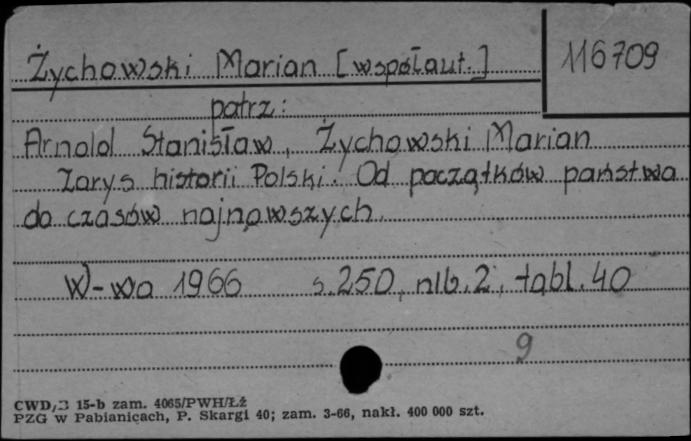 Żychowski Marian [współaut.]
116709
patrz:
Arnold Stanisław, Żychowski Marian
Zarys historii Polski. Od początków państwa
do czasów najnowszych.
W-wa 1966 s.250, nlb.2, tabl.40
9
CWD, 15-b zam. 4065/PWH/Łż
PZG w Pabianicach, P. Skargi 40; zam. 3-66, nakł. 400 000 szt.